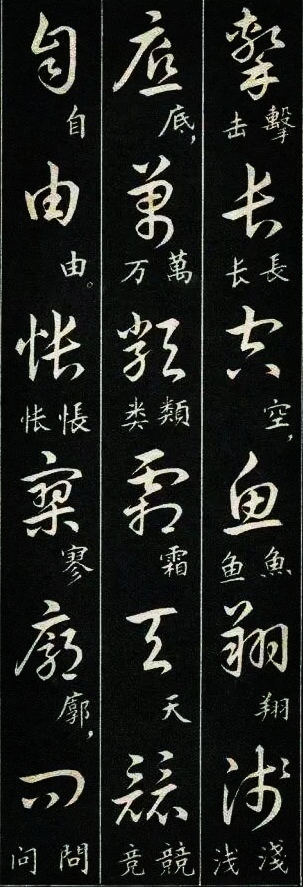 擊 擊 击
长 長 长
空 空,
鱼 魚 鱼
翔 翔
浅 淺 浅
底 底,
万 萬 万
类 類 类
霜 霜
天 天
竞 競 竞
自 自
由 由。
怅 悵 怅
寥 寥
廓 廓,
问 問 问